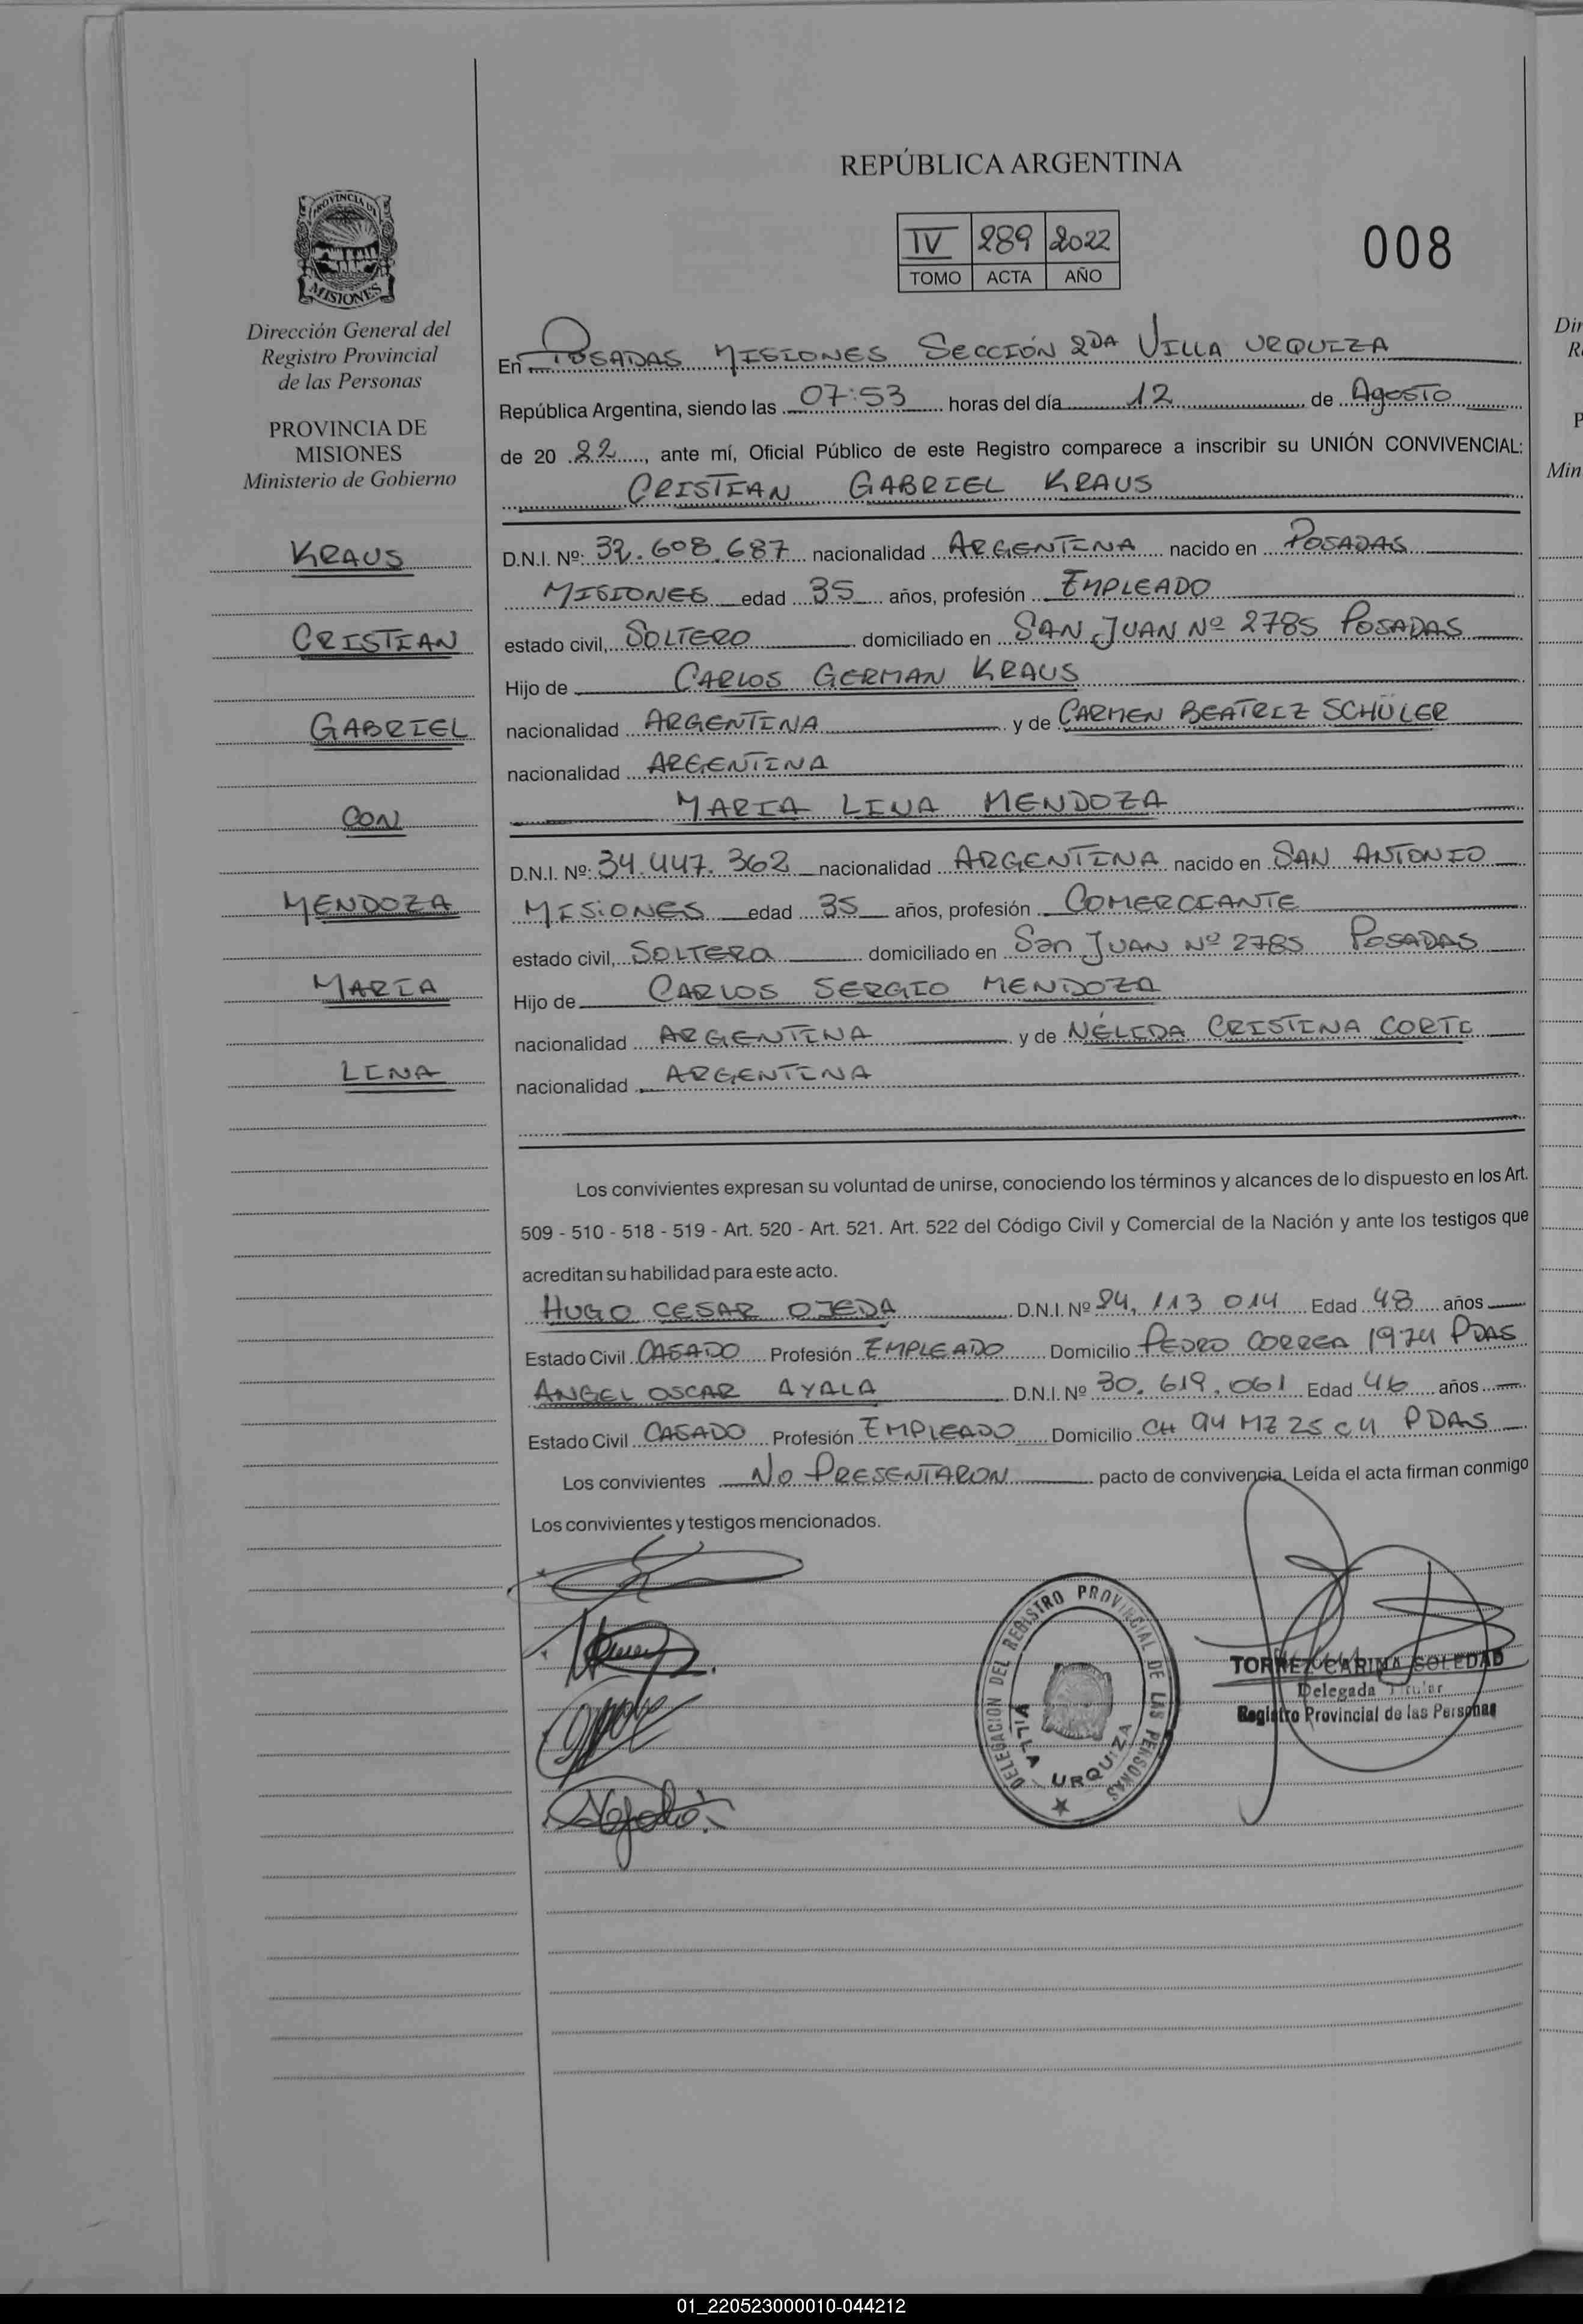 REPÚBLICA ARGENTINA
IV 289 2022
TOMO ACTA AÑO
008
PROVINCIA DE
MISIONES
Dirección General del
Registro Provincial
de las Personas
PROVINCIA DE
MISIONES
Ministerio de Gobierno
KRAUS
CRISTIAN
GABRIEL
CON
MENDOZA
MARIA
LINA
En POSADAS MISIONES SECCIÓN 2DA VILLA URQUIZA
República Argentina, siendo las 07:53 horas del día 12 de Agosto
de 20 22, ante mí, Oficial Público de este Registro comparece a inscribir su UNIÓN CONVIVENCIAL:
CRISTIAN GABRIEL KRAUS
D.N.I. Nº: 32.608.687 nacionalidad ARGENTINA nacido en POSADAS
MISIONES edad 35 años, profesión EMPLEADO
estado civil, SOLTERO domiciliado en SAN JUAN Nº 2785 POSADAS
Hijo de CARLOS GERMAN KRAUS
nacionalidad ARGENTINA y de CARMEN BEATRIZ SCHÜLER
nacionalidad ARGENTINA
MARIA LINA MENDOZA
D.N.I. Nº: 34.447.362 nacionalidad ARGENTINA nacido en SAN ANTONIO
MISIONES edad 35 años, profesión COMERCIANTE
estado civil, SOLTERA domiciliado en San JUAN Nº 2785 POSADAS
Hijo de CARLOS SERGIO MENDOZA
nacionalidad ARGENTINA y de NÉLIDA CRISTINA CORTI
nacionalidad ARGENTINA
Los convivientes expresan su voluntad de unirse, conociendo los términos y alcances de lo dispuesto en los Art.
509 - 510 - 518 - 519 - Art. 520 - Art. 521. Art. 522 del Código Civil y Comercial de la Nación y ante los testigos que
acreditan su habilidad para este acto.
HUGO CESAR OJEDA D.N.I. Nº 24.113 014 Edad 48 años
Estado Civil CASADO Profesión EMPLEADO Domicilio PEDRO CORREA 1974 PDAS
ANGEL OSCAR AYALA D.N.I. Nº 30.619.061 Edad 46 años
Estado Civil CASADO Profesión EMPLEADO Domicilio CH 94 MZ 25 C 4 PDAS
Los convivientes NO PRESENTARON pacto de convivencia. Leída el acta firman conmigo
Los convivientes y testigos mencionados.
DELEGACION DEL REGISTRO PROVINCIAL DE LAS PERSONAS
VILLA URQUIZA
TORREZ CARINA SOLEDAD
Delegada Titular
Registro Provincial de las Personas
Dir
R
P
Min
01_220523000010-044212